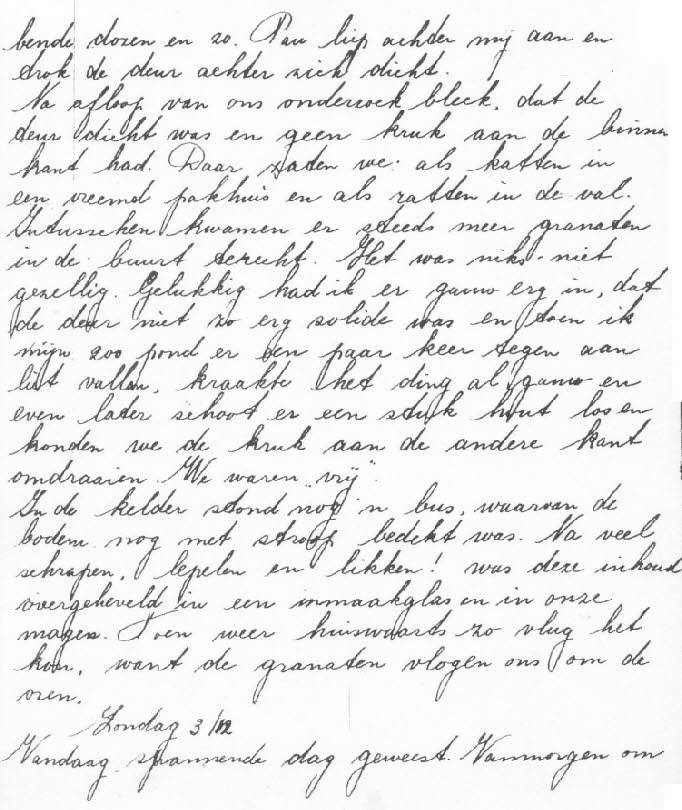 bende dozen en zo. Pau liep achter mij aan en
trok de deur achter zich dicht.
Na afloop van ons onderzoek bleek, dat de
deur dicht was en geen kruk aan de binnen
kant had. Daar zaten we: als katten in
een vreemd pakhuis en als ratten in de val.
Intusschen kwamen er steeds meer granaten
in de buurt terecht. Het was niks niet
gezellig. Gelukkig had ik er gauw erg in, dat
de deur niet zo erg solide was en toen ik
mijn 200 pond er een paar keer tegen aan
liet vallen, kraakte het ding al gauw en
even later schoot er een stuk hout los en
konden we de kruk aan de andere kant
omdraaien. We waren "vrij".
In de kelder stond nog 'n bus, waarvan de
bodem nog met stroop bedekt was. Na veel
schrapen, lepelen en likken! was deze inhoud
overgeheveld in een inmaakglas en in onze
magen. Toen weer huiswaarts zo vlug het
kon, want de granaten vlogen ons om de
oren.
Zondag 3/12
Vandaag spannende dag geweest. Vanmorgen om